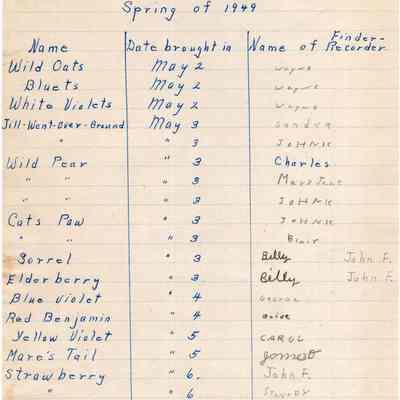 Spring of 1949
Name Date brought in Name of Finder-Recorder
Wild Oats May 2 wayne
Bluets May 2 wayne
White Violets May 2 wayne
Jill-Went-Over-Ground May 3 Sandra
" " 3 JOHNK
Wild Pear " 3 Charles
" " " 3 Mary Jane
" " " 3 JOHNK
Cats Paw " 3 JOHNK
" " " 3 Blair
Sorrel " 3 Billy John F.
Elderberry " 3 Billy John F.
Blue Violet " 4 George
Red Benjamin " 4
Yellow Violet " 5 CAROL
Mare's Tail " 5
Strawberry " 6. John F.
" " 6